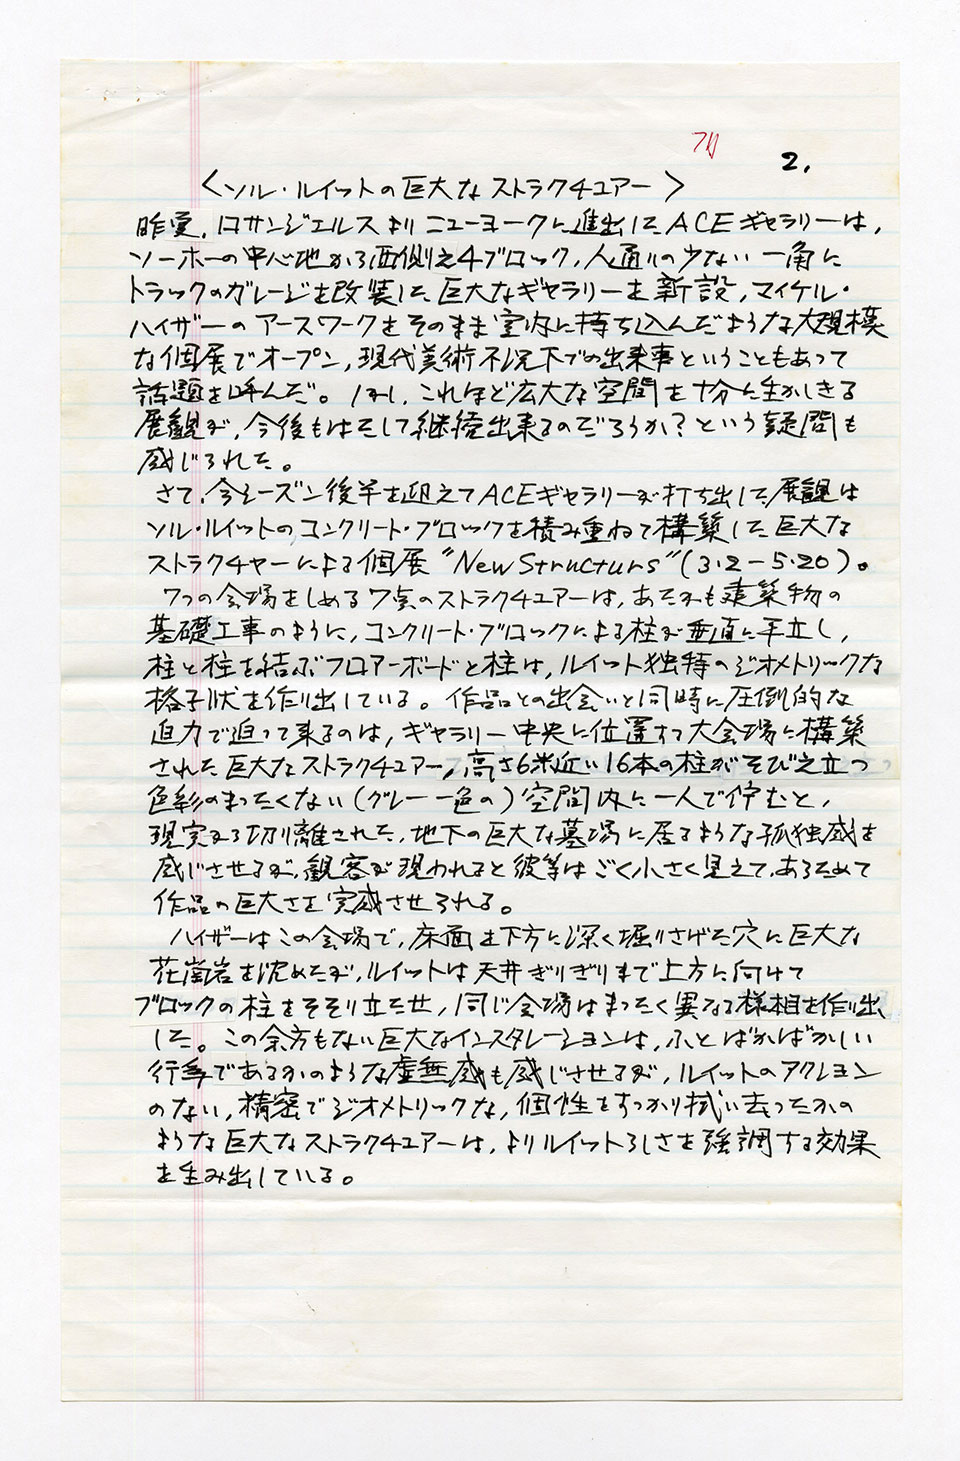 2.
〈ソル・ルイットの巨大なストラクチュアー〉
昨夏、ロサンジェルスよりニューヨークに進出したACEギャラリーは、
ソーホーの中心地から西側え4ブロック、人通りの少ない一角に
トラックのガレージを改装した巨大なギャラリーを新設、マイケル・
ハイザーのアースワークをそのまま室内に持ち込んだような大規模
な個展でオープン、現代美術不況下での出来事ということもあって
話題を呼んだ。しかし、これほど広大な空間を十分に生かしきる
展観が、今後もはたして継続出来るのだろうか?という疑問も
感じられた。
さて、今シーズン後半を迎えてACEギャラリーが打ち出した展観は
ソル・ルイットのコンクリート・ブロックを積み重ねて構築した巨大な
ストラクチャーによる個展“New Structurs”(3・2-5・20)。
7つの会場をしめる7点のストラクチュアーは、あたかも建築物の
基礎工事のように、コンクリート・ブロックによる柱が垂直に手立し、
柱と柱を結ぶフロアーボードと柱は、ルイット独特のジオメトリックな
格子状を作り出している。作品との出会いと同時に圧倒的な
迫力で迫って来るのは、ギャラリー中央に位置すつ大会場に構築
された巨大なストラクチュアー、高さ6米近い16本の柱がそびえ立つ
色彩のまったくない(グレー一色の)空間内に一人で佇むと、
現実から切り離された、地下の巨大な墓場に居るような孤独感を
感じさせるが、観客が現われると彼等はごく小さく見えて、あらためて
作品の巨大さを完感させられる。
ハイザーはこの会場で、床面を下方に深く堀りさげた穴に巨大な
花崗岩を沈めたが、ルイットは天井ぎりぎりまで上方に向けて
ブロックの柱をそそり立たせ、同じ会場はまったく異なる様相を作り出
した。この余方もない巨大なインスタレーションは、ふとばかばかしい
行為であるかのような虚無感も感じさせるが、ルイットのアクション
のない、精密でジオメトリックな、個性をすっかり拭い去ったかの
ような巨大なストラクチュアーは、よりルイットらしさを強調する効果
を生み出している。